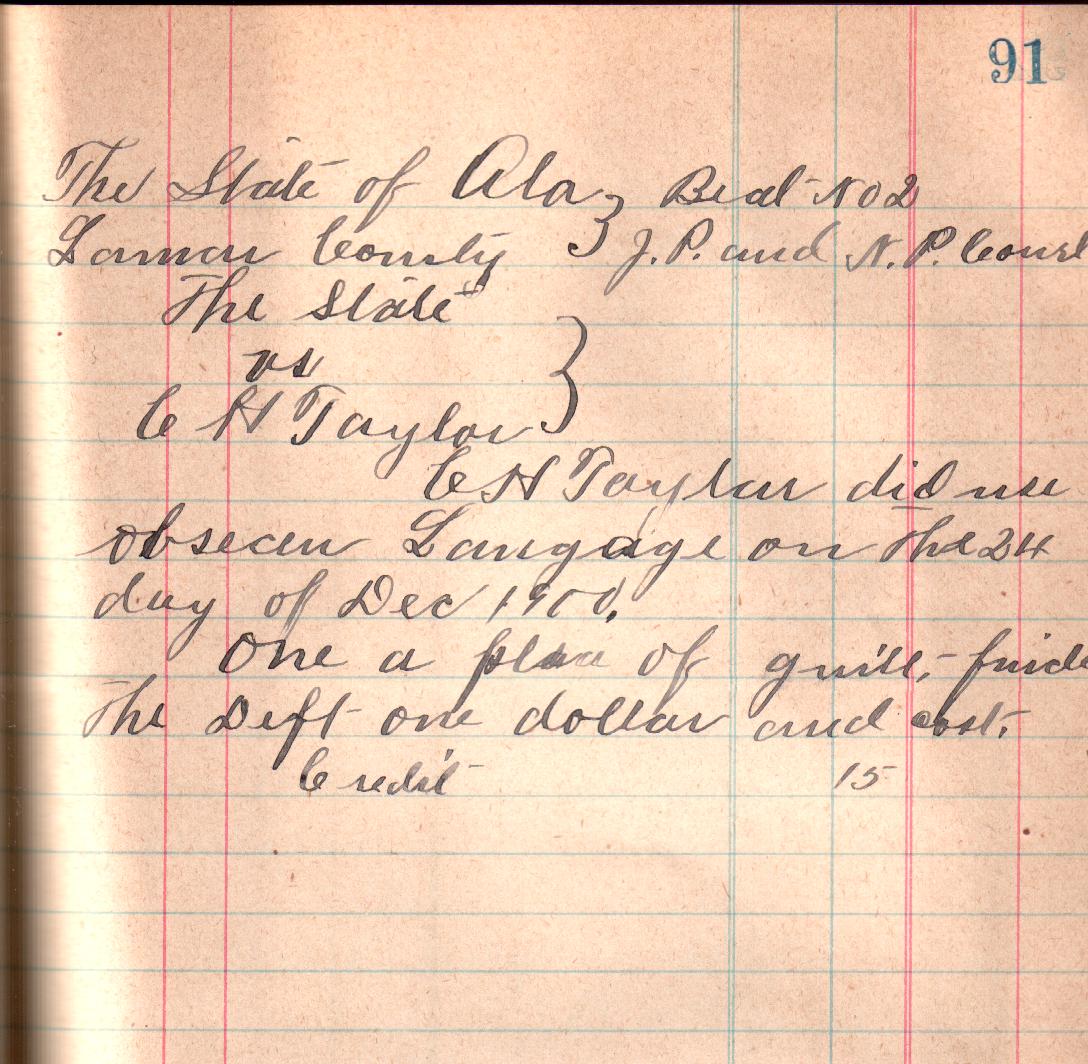 91
The State of Ala } Beat No 2
Lamar County } J.P. and N.P. Court
The State
vs
C H Taylor }
C H Taylor did use
obseen Langage on the 24
day of Dec 1900.
One a plea of guilt, finde
the Deft one dollar and cost.
Credit 15